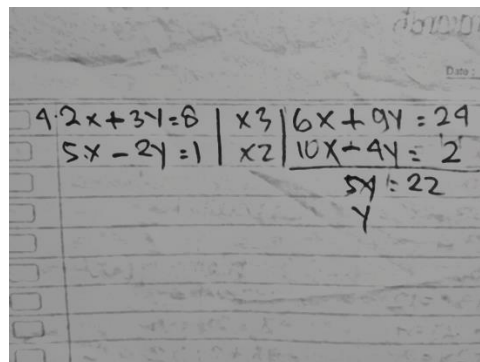 Date:
4. 2x + 3y = 8 | x3 | 6x + 9y = 24
5x - 2y = 1 | x2 | 10x - 4y = 2
5y = 22
y